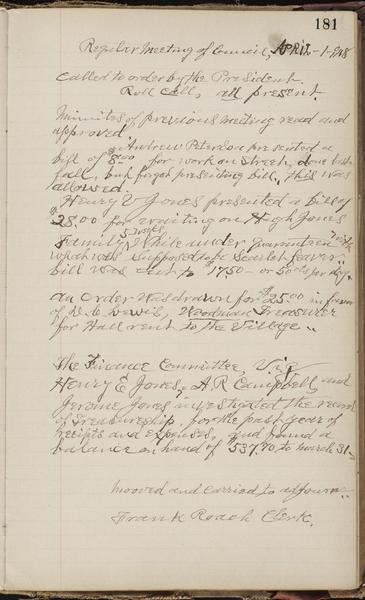 181
Regular Meeting of Council, April-1-
Called to order by the President.
Roll Call, all present.
Minutes of previous meeting read and
approved.
Andrew Peterson presented a
bill of $8.00 for work on Street, done last
fall, but forgot presenting bill, this was
allowed.
Henry V Jones presented a bill of
$28.00 for waiting on High Jones
5 weeks
Family while under Quarenteen with
what was supposed to be Scarlet fever.
bill was cut to $17.50 - or 50cts per day.
an Order was drawn for $25.00 in favor
of Lewis, Woodman Treasurer
for Hall rent to the Village.
The Finance Committee, Viz
Henry E Jones, A.R. Campbell, and
Jerome Jones investigated the
of Treasureship, for the past year of
receipts and expenses, and found a
balance on hand of 537.70 to march 31-
mooved and carried to adjourn.
Frank Roach Clerk.